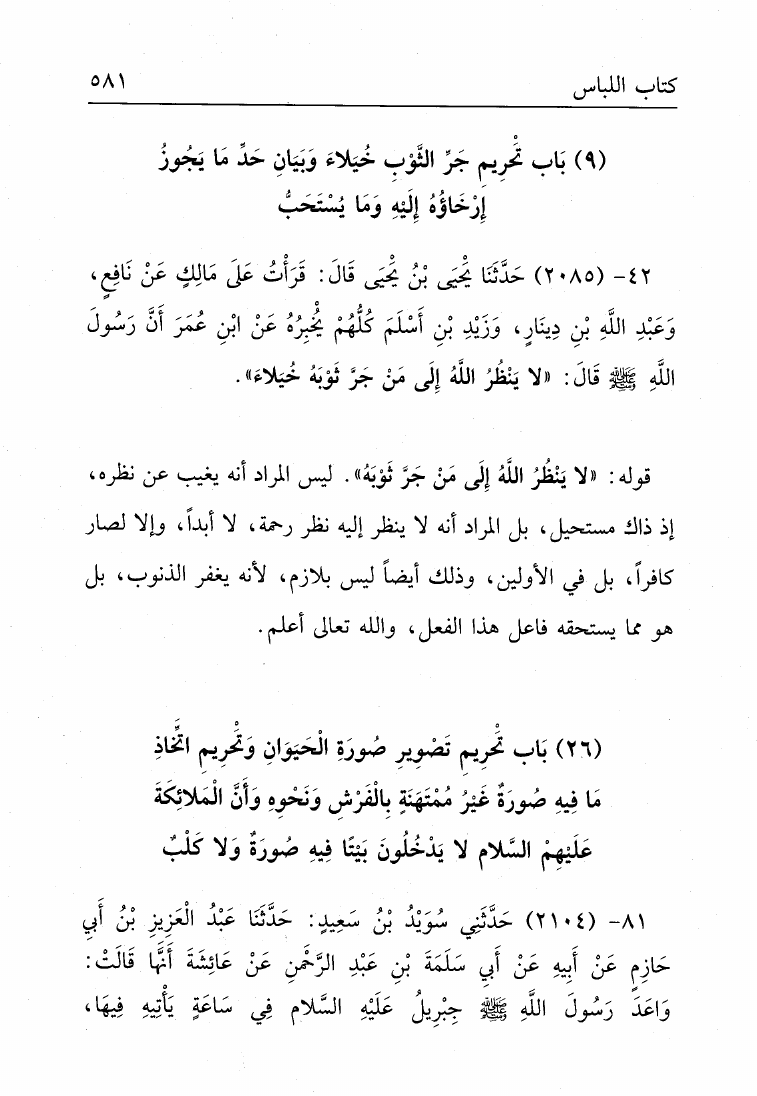 كتاب اللباس ٥٨١
(٩) بَاب تَحْرِيمِ جَرِّ الثَّوْبِ خُيَلاءَ وَبَيَانِ حَدِّ مَا يَجُوزُ
إِرْخَاؤُهُ إِلَيْهِ وَمَا يُسْتَحَبُّ
٤٢- (٢٠٨٥) حَدَّثَنَا يَحْيَى بْنُ يَحْيَى قَالَ: قَرَأْتُ عَلَى مَالِكٍ عَنْ نَافِعٍ،
وَعَبْدِ اللَّهِ بْنِ دِينَارٍ، وَزَيْدِ بْنِ أَسْلَمَ كُلُّهُمْ يُخْبِرُهُ عَنْ ابْنِ عُمَرَ أَنَّ رَسُولَ
اللَّهِ ﷺ قَالَ: «لا يَنْظُرُ اللَّهُ إِلَى مَنْ جَرَّ ثَوْبَهُ خُيَلاءَ».
قوله: «لا يَنْظُرُ اللَّهُ إِلَى مَنْ جَرَّ ثَوْبَهُ». ليس المراد أنه يغيب عن نظره،
إذ ذاك مستحيل، بل المراد أنه لا ينظر إليه نظر رحمة، لا أبداً، وإلا لصار
كافراً، بل في الأولين، وذلك أيضاً ليس بلازم، لأنه يغفر الذنوب، بل
هو مما يستحقه فاعل هذا الفعل، والله تعالى أعلم.
(٢٦) بَاب تَحْرِيمِ تَصْوِيرِ صُورَةِ الْحَيَوَانِ وَتَحْرِيمِ اتِّخَاذِ
مَا فِيهِ صُورَةٌ غَيْرُ مُمْتَهَنَةٍ بِالْفَرْشِ وَنَحْوِهِ وَأَنَّ الْمَلائِكَةَ
عَلَيْهِمْ السَّلام لا يَدْخُلُونَ بَيْتًا فِيهِ صُورَةٌ وَلا كَلْبٌ
٨١- (٢١٠٤) حَدَّثَنِي سُوَيْدُ بْنُ سَعِيدٍ: حَدَّثَنَا عَبْدُ الْعَزِيزِ بْنُ أَبِي
حَازِمٍ عَنْ أَبِيهِ عَنْ أَبِي سَلَمَةَ بْنِ عَبْدِ الرَّحْمنِ عَنْ عَائِشَةَ أَنَّهَا قَالَتْ:
وَاعَدَ رَسُولَ اللَّهِ ﷺ جِبْرِيلُ عَلَيْهِ السَّلام فِي سَاعَةٍ يَأْتِيهِ فِيهَا،